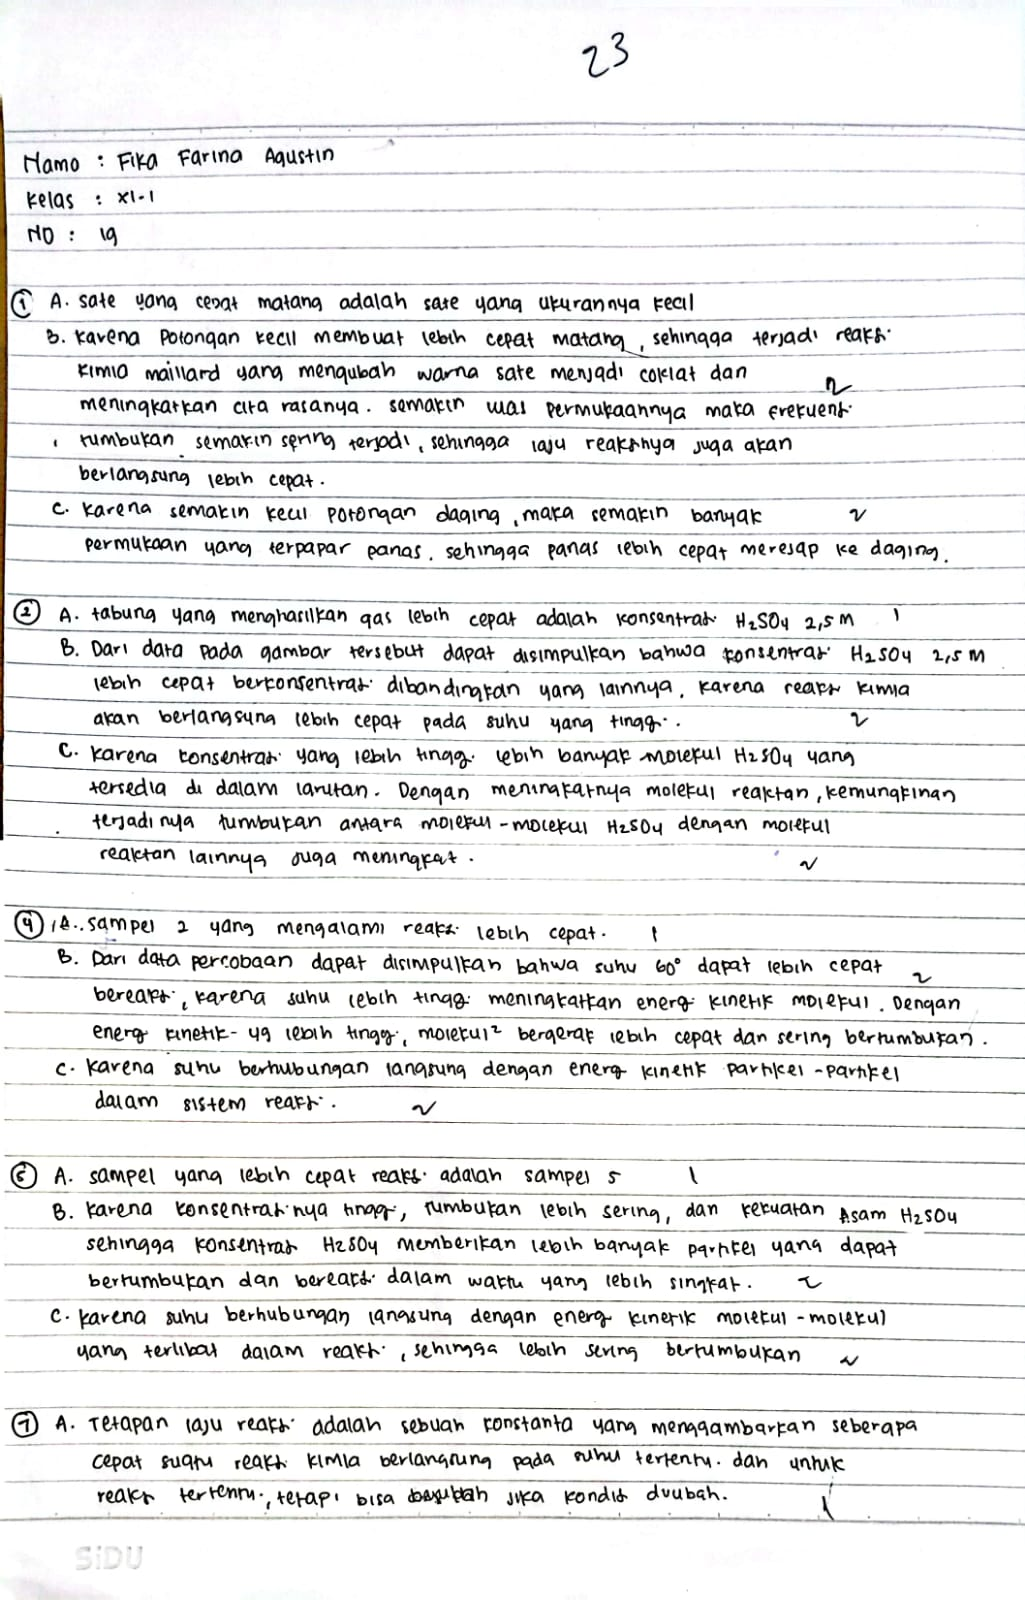 23
Nama : Fika Farina Agustin
Kelas : XI-1
NO : 19
① A. sate yang cepat matang adalah sate yang ukurannya kecil
B. Karena Potongan kecil membuat lebih cepat matang, sehingga terjadi reaksi
kimia maillard yang mengubah warna sate menjadi coklat dan
2
meningkatkan cita rasanya. semakin luas permukaannya maka frekuensi
tumbukan semakin sering terjadi, sehingga laju reaksinya juga akan
berlangsung lebih cepat.
C. Karena semakin kecil potongan daging, maka semakin banyak 2
permukaan yang terpapar panas. sehingga panas lebih cepat meresap ke daging.
② A. tabung yang menghasilkan gas lebih cepat adalah konsentrasi H2SO4 2,5 M 1
B. Dari data pada gambar tersebut dapat disimpulkan bahwa konsentrasi H2SO4 2,5 M
lebih cepat berkonsentrasi dibandingkan yang lainnya. karena reaksi kimia
akan berlangsung lebih cepat pada suhu yang tinggi. 2
C. Karena konsentrasi yang lebih tinggi lebih banyak molekul H2SO4 yang
tersedia di dalam larutan. Dengan meningkatnya molekul reaktan, kemungkinan
terjadi nya tumbukan antara molekul-molekul H2SO4 dengan molekul
reaktan lainnya juga meningkat. 2
④ A. sampel 2 yang mengalami reaksi lebih cepat. 1
B. Dari data percobaan dapat disimpulkan bahwa suhu 60° dapat lebih cepat 2
bereaksi, karena suhu lebih tinggi meningkatkan energi kinetik molekul. Dengan
energi kinetik yg lebih tinggi, molekul² bergerak lebih cepat dan sering bertumbukan.
C. Karena suhu berhubungan langsung dengan energi kinetik partikel-partikel
dalam sistem reaksi. 2
A. sampel yang lebih cepat reaksi adalah sampel 5 1
B. Karena konsentrasinya tinggi, tumbukan lebih sering, dan kekuatan Asam H2SO4
sehingga konsentrasi H2SO4 memberikan lebih banyak partikel yang dapat
bertumbukan dan bereaksi dalam waktu yang lebih singkat. 2
C. Karena suhu berhubungan langsung dengan energi kinetik molekul-molekul
yang terlibat dalam reaksi, sehingga lebih sering bertumbukan 2
⑦ A. Tetapan laju reaksi adalah sebuah konstanta yang menggambarkan seberapa
cepat suatu reaksi kimia berlangsung pada suhu tertentu. dan untuk
reaksi tertentu, tetapi bisa jika kondisi diubah. 1
SiDU